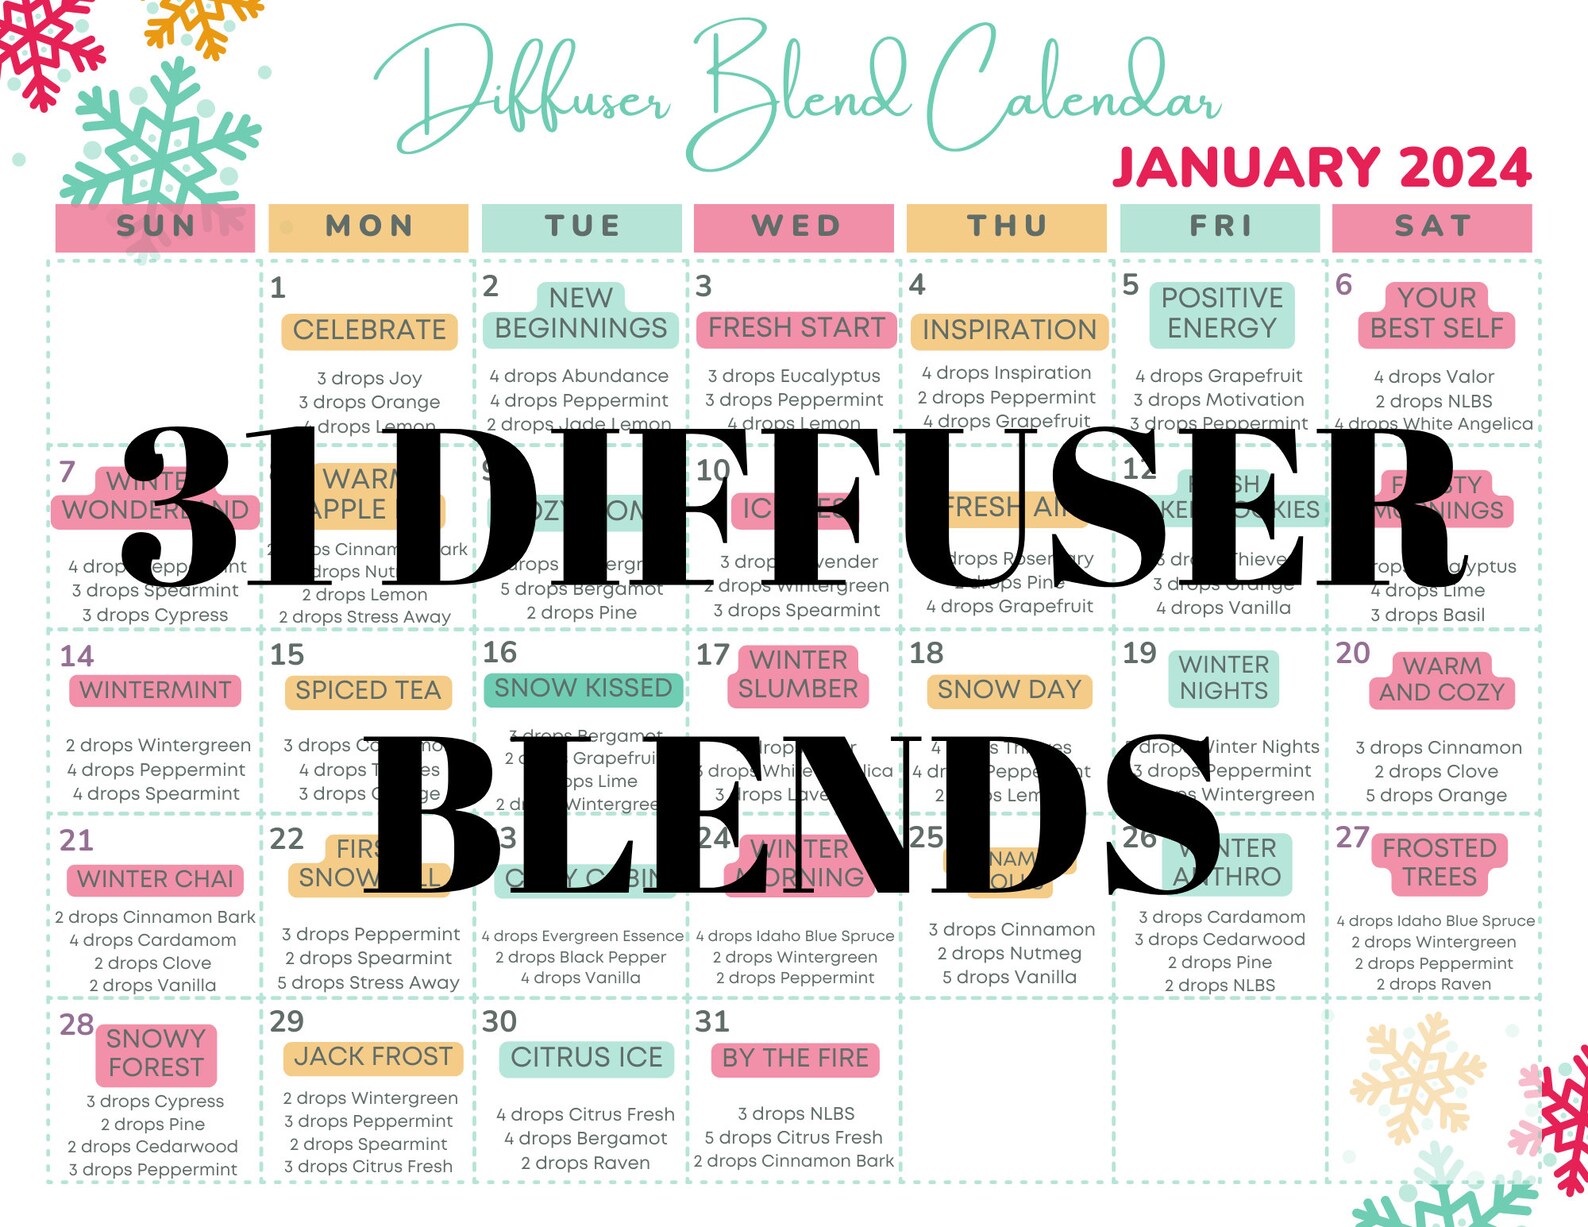 Diffuser Blend Calendar
JANUARY 2024
SUN MON TUE WED THU FRI SAT
1
CELEBRATE
3 drops Joy
3 drops Orange
4 drops Lemon
2
NEW
BEGINNINGS
4 drops Abundance
4 drops Peppermint
2 drops Jade Lemon
3
FRESH START
3 drops Eucalyptus
3 drops Peppermint
4 drops Lemon
4
INSPIRATION
4 drops Inspiration
2 drops Peppermint
4 drops Grapefruit
5
POSITIVE
ENERGY
4 drops Grapefruit
3 drops Motivation
3 drops Peppermint
6
YOUR
BEST SELF
4 drops Valor
2 drops NLBS
4 drops White Angelica
31 DIFFUSER
BLENDS
7
WINTER
WONDERLAND
4 drops Peppermint
3 drops Spearmint
3 drops Cypress
WARM
APPLE
drops Cinnamon Bark
drops
2 drops Lemon
2 drops Stress Away
drops
5 drops Bergamot
2 drops Pine
10
3 drops Lavender
2 drops Wintergreen
3 drops Spearmint
FRESH AIR
drops Rosemary
drops Pine
4 drops Grapefruit
12
3 drops Thieves
3 drops Orange
4 drops Vanilla
FROSTY
MORNINGS
drops Eucalyptus
4 drops Lime
3 drops Basil
14
WINTERMINT
2 drops Wintergreen
4 drops Peppermint
4 drops Spearmint
15
SPICED TEA
3 drops Cardamom
4 drops Thieves
3 drops Orange
16
SNOW KISSED
3 drops Bergamot
2 drops Grapefruit
drops Lime
2 drops Wintergreen
17
WINTER
SLUMBER
drops
3 drops White Angelica
3 drops Lavender
18
SNOW DAY
4 drops Thieves
4 drops Peppermint
2 drops Lemon
19
WINTER
NIGHTS
drops Winter Nights
3 drops Peppermint
drops Wintergreen
20
WARM
AND COZY
3 drops Cinnamon
2 drops Clove
5 drops Orange
21
WINTER CHAI
2 drops Cinnamon Bark
4 drops Cardamom
2 drops Clove
2 drops Vanilla
22
FIRST
SNOWFALL
3 drops Peppermint
2 drops Spearmint
5 drops Stress Away
CABIN
4 drops Evergreen Essence
2 drops Black Pepper
4 drops Vanilla
24
WINTER
MORNING
4 drops Idaho Blue Spruce
2 drops Wintergreen
2 drops Peppermint
25
3 drops Cinnamon
2 drops Nutmeg
5 drops Vanilla
26
WINTER
ANTHRO
3 drops Cardamom
3 drops Cedarwood
2 drops Pine
2 drops NLBS
27
FROSTED
TREES
4 drops Idaho Blue Spruce
2 drops Wintergreen
2 drops Peppermint
2 drops Raven
28
SNOWY
FOREST
3 drops Cypress
2 drops Pine
2 drops Cedarwood
3 drops Peppermint
29
JACK FROST
2 drops Wintergreen
3 drops Peppermint
2 drops Spearmint
3 drops Citrus Fresh
30
CITRUS ICE
4 drops Citrus Fresh
4 drops Bergamot
2 drops Raven
31
BY THE FIRE
3 drops NLBS
5 drops Citrus Fresh
2 drops Cinnamon Bark